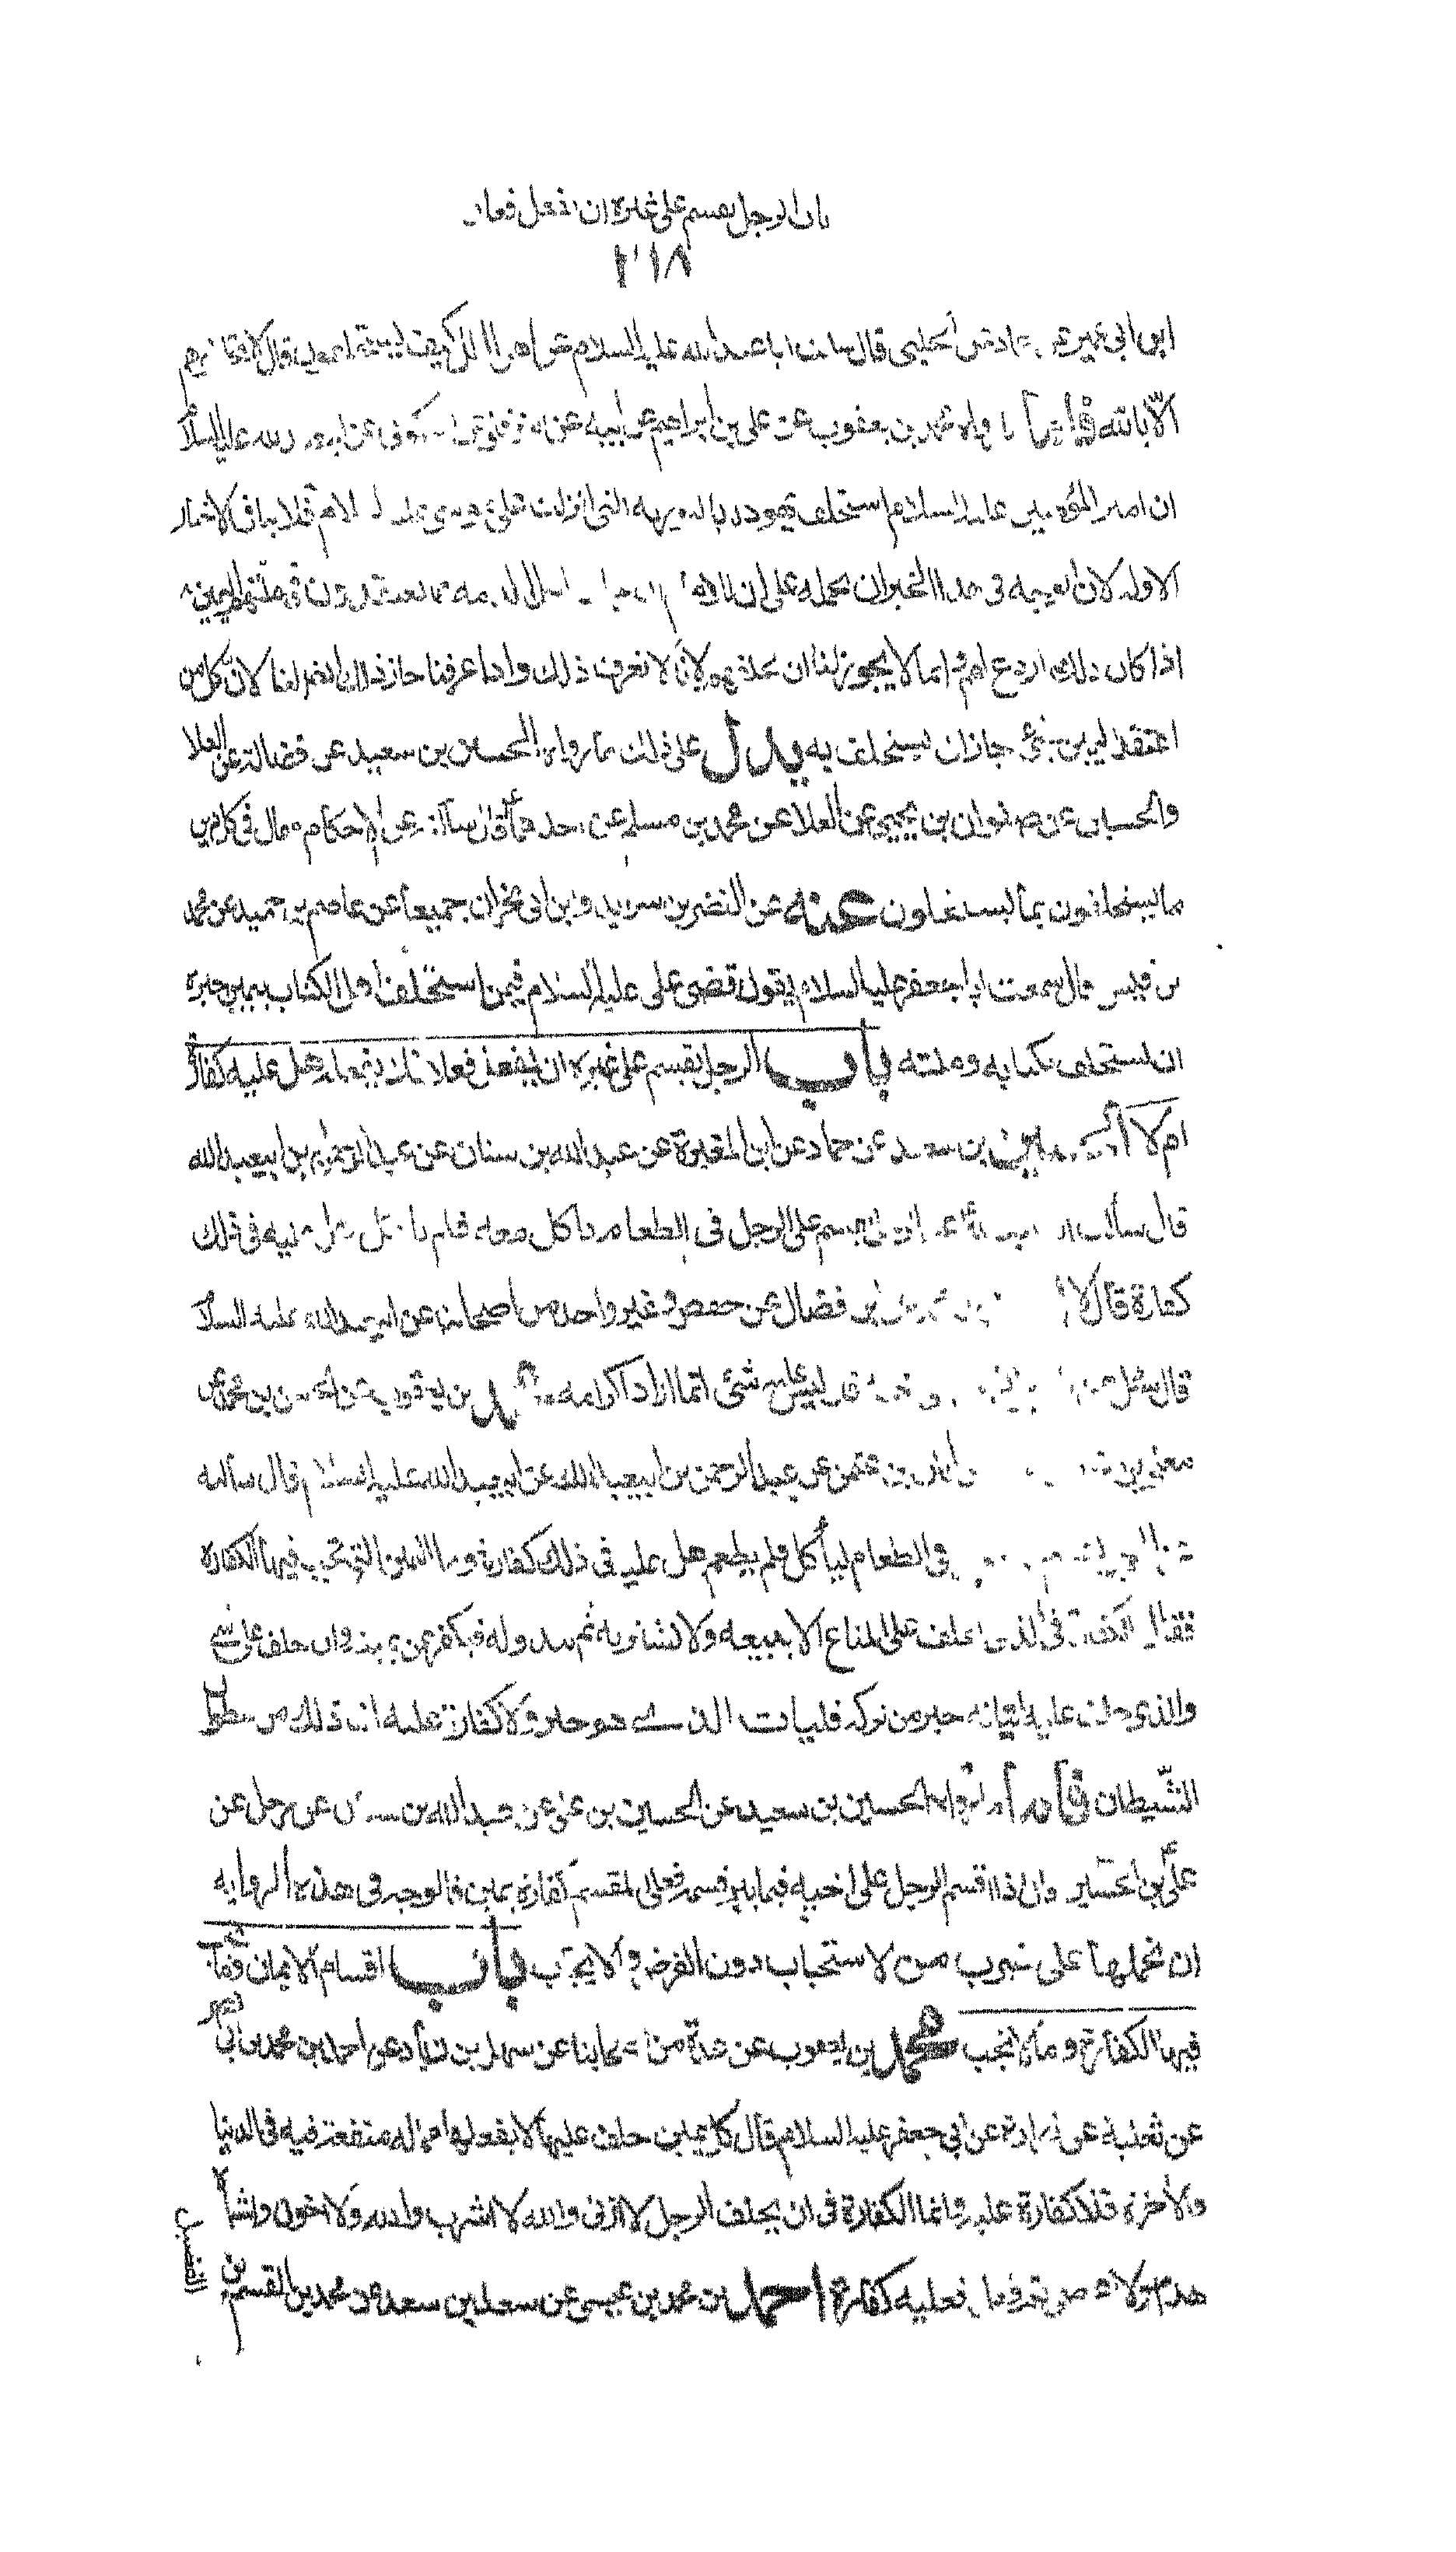 باب الرجل يقسم على غيره ان يفعل فعلا
٢١٨
ابن ابي عمير عن حماد عن الحلبي قال سالت ابا عبد الله عليه السلام عن اهل الملل كيف يستحلفون قال لا تحلفوهم
الّا بالله فاما ما رواه محمد بن يعقوب عن علي بن ابراهيم عن ابيه عن النوفلي عن السكوني عن ابي عبد الله عليه السلام
ان امير المؤمنين عليه السلام استحلف يهوديا بالتورية التي انزلت على موسى عليه السلام فلا ينافي الاخبار
الاولة لان الوجه في هذا الخبر ان نحمله على ان للامام ان يحلف اهل الذمة بما يعتقدون في ملتهم اليمين به
اذا كان ذلك اردع لهم وانما لا يجوز لنا ان نحلفهم لانا لا نعرف ذلك واذا عرفنا جاز ذلك ايضا لنا لان كل من
اعتقد اليمين بشئ جاز ان يستحلف به يدل على ذلك ما رواه الحسين بن سعيد عن فضالة عن العلا
والحسين عن صفوان بن يحيى عن العلا عن محمد بن مسلم عن احدهما قال سالته عن الاحكام فقال في كل دين
ما يستحلفون بما يستحلون عنه عن النضر بن سويد وابن ابي نجران جميعا عن عاصم بن حميد عن محمد
بن قيس قال سمعت ابا جعفر عليه السلام يقول قضى علي عليه السلام فيمن استحلف اهل الكتاب بيمين صبر
ان يستحلف بكتابه وملته باب الرجل يقسم على غيره ان يفعل فعلا فلم يفعله هل عليه كفارة
ام لا الحسين بن سعيد عن حماد عن ابن المغيرة عن عبد الله بن سنان عن عبد الرحمن بن ابي عبد الله
قال سالت ابا عبد الله عن الرجل يقسم على الرجل في الطعام ياكل معه فلم ياكل هل عليه في ذلك
كفارة قال لا بن فضال عن حفص وغير واحد من اصحابنا عن ابي عبد الله عليه السلام
قال سئل عن قال ليس عليه شئ انما اراد اكرامه محمد بن يعقوب عن الحسين بن محمد عن
معلى بن عن ابان بن عثمن عن عبد الرحمن بن ابي عبد الله عن ابي عبد الله عليه السلام قال سالته
عن الرجل في الطعام لياكل فلم يطعم هل عليه في ذلك كفارة وما اليمين التي تجب فيها الكفارة
فقال الكفارة في الذي يحلف على المتاع الا يبيعه ولا يشتريه ثم يبدو له فيكفر عن يمينه وان حلف على شئ
والذي حلف عليه اتيانه خير من تركه فليات الذي هو خير ولا كفارة عليه انما ذلك من خطوات
الشيطان فاما ما رواه الحسين بن سعيد عن الحسين بن عن عبد الله بن عن رجل عن
علي بن الحسين قال اذا اقسم الرجل على اخيه فلم يبر قسمه فعلى المقسم كفارة يمين فالوجه في هذه الرواية
ان نحملها على ضرب من الاستحباب دون الفرض والايجاب باب اقسام الايمان وما تجب
فيها الكفارة وما لا تجب محمد بن يعقوب عن عدة من اصحابنا عن سهل بن زياد عن احمد بن محمد بن ابي نصر
عن ثعلبة عن زرارة عن ابي جعفر عليه السلام قال كل يمين حلف عليها لا يفعلها مما له منفعة فيه في الدنيا
والاخرة فلا كفارة عليه وانما الكفارة في ان يحلف الرجل لا ازني والله لا اشرب والله ولا اخون واشباه
هذا ولا اعصي ثم فعل فعليه كفارة احمد بن محمد بن عيسى عن سعد بن سعد عن محمد بن القسم بن
الفضيل